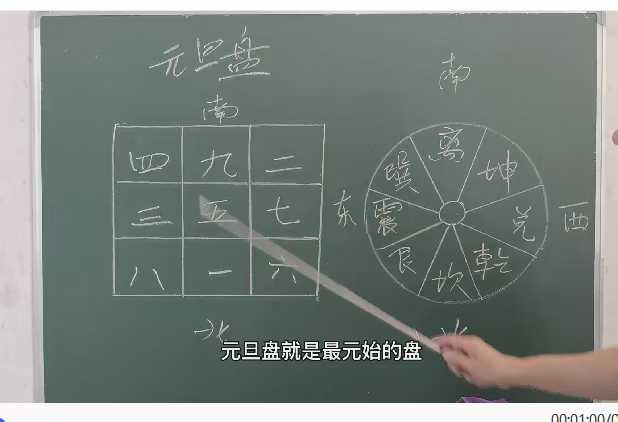 元旦盘
南
四 九 二
三 五 七
八 一 六
北
南
巽 离 坤
东 震 兑 西
艮 坎 乾
北
元旦盘就是最元始的盘